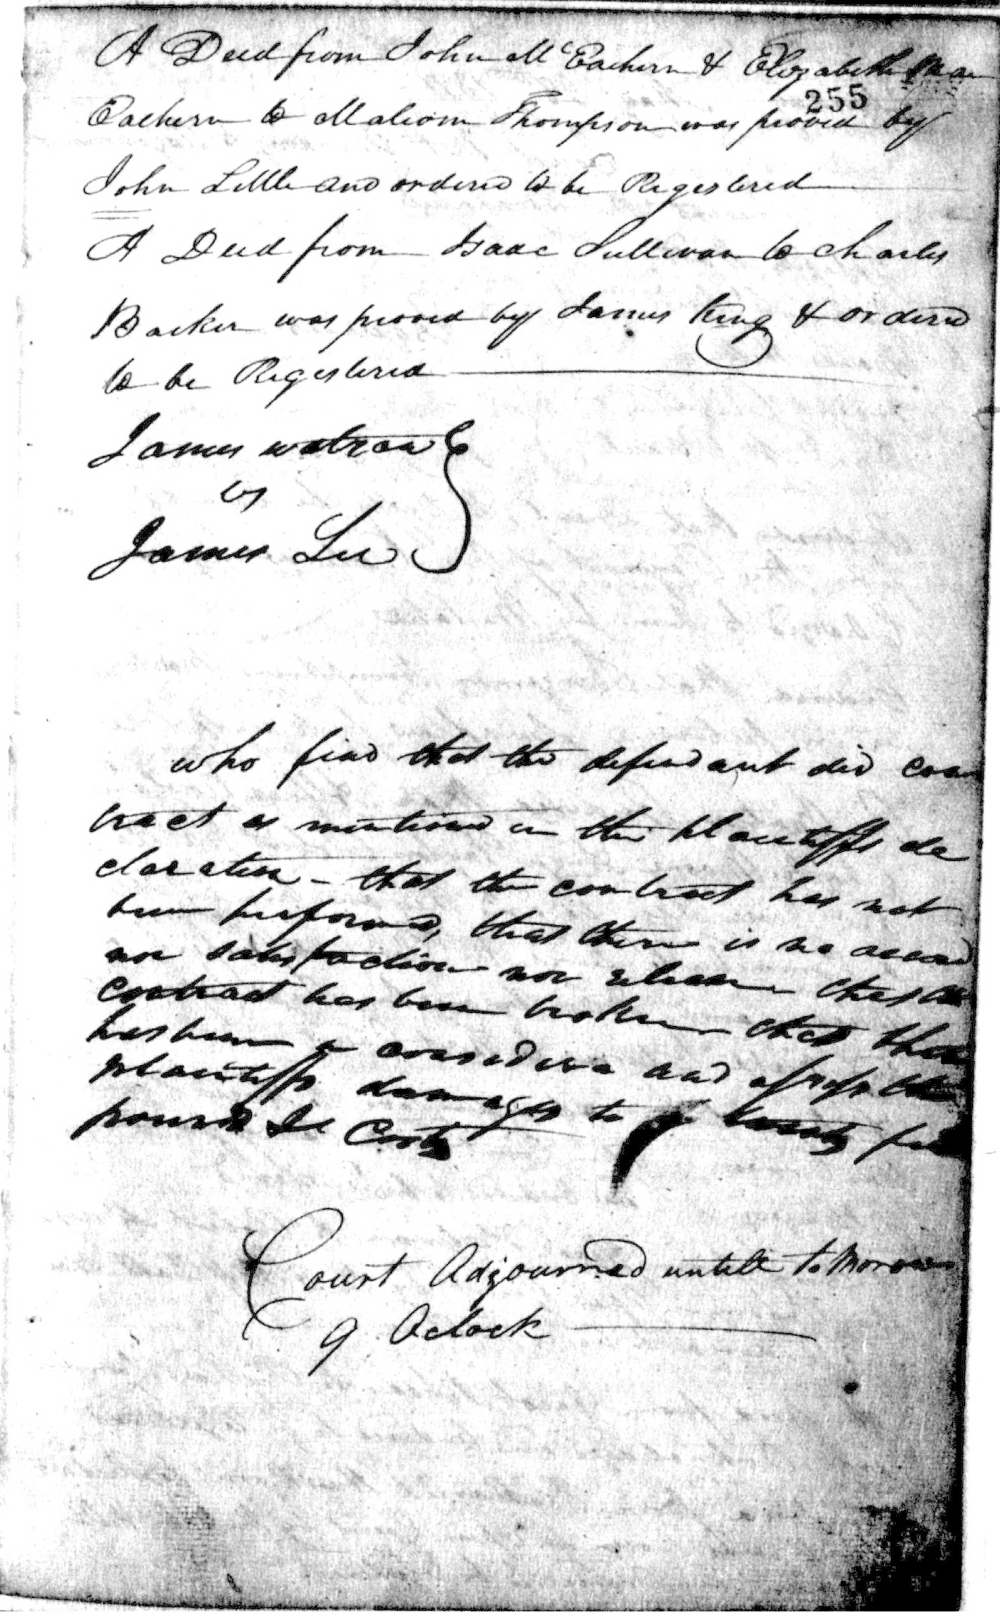 A Deed from John McEachern & Elizabeth
255
Eachern to Malcom Thompson was proved by
John Little and ordered to be Registered
A Deed from Isaac Sullivan to Charles
Barker was proved by James King & ordered
to be Registered
James watson
vs
James Lee
who find that the defendant did con
tract as mentioned in the plaintiffs de
claration - that the contract has not
been performed, that there is no accord
nor satisfaction nor release that the
contract has been broken that there
has been a and assess the
plaintiffs damages to twenty five
pounds & Costs
Court Adjourned untill to Morrow
9 Oclock